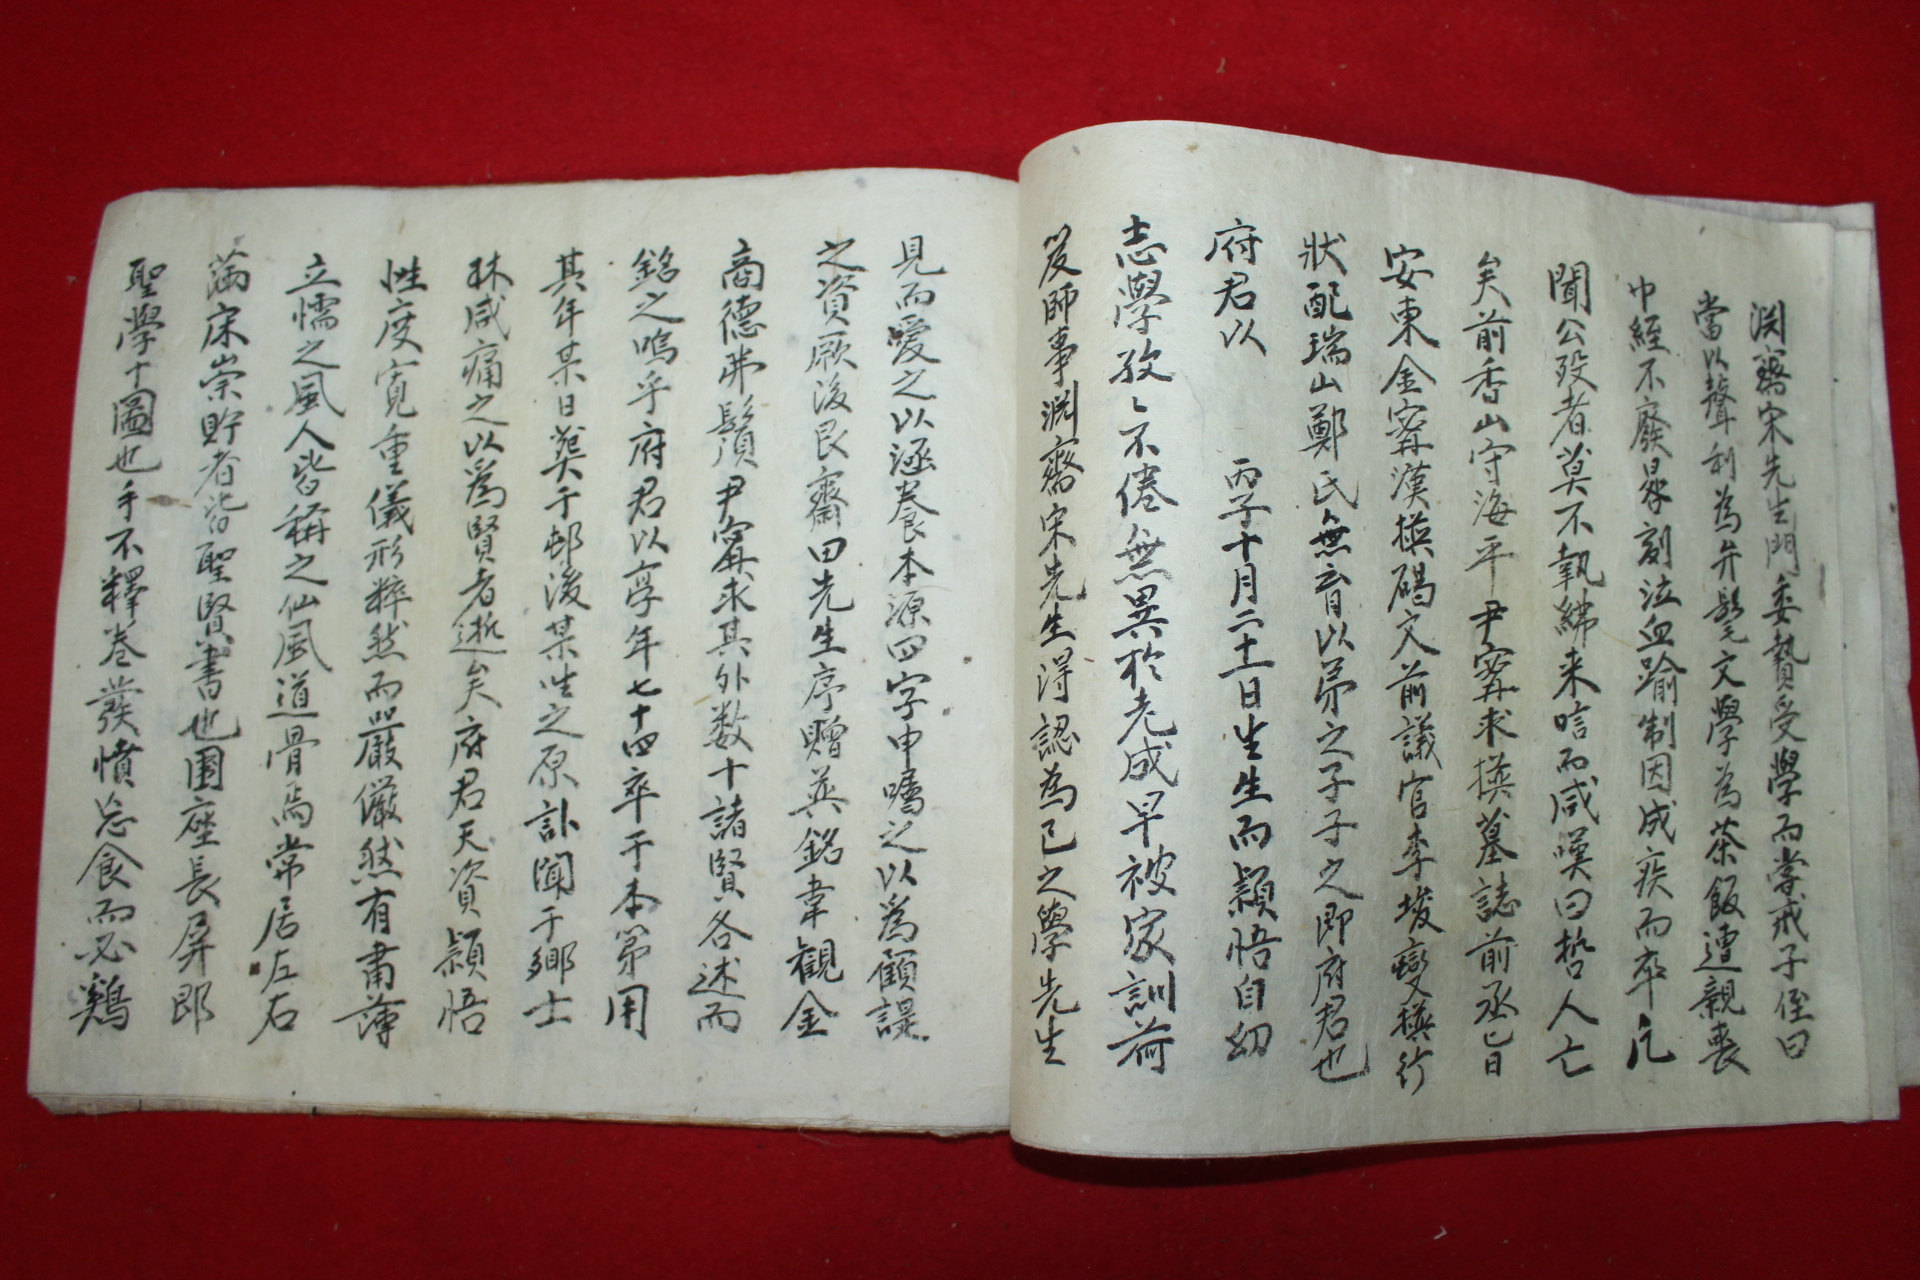 淵齋宋先生門委贄受學而常戒子侄曰
當以聲利為弁髦文學為茶飯遭親喪
中經不廢晷刻泣血踰制因成疾而卒凡
聞公歿者莫不執紼来唁而咸嘆曰哲人亡
矣前香山守海平尹寗求撰墓誌前丞旨
安東金寗漢撰碣文前議官李埈夔撰行
狀配瑞山鄭氏無育以弟之子子之即府君也
府君以 丙子十月二十一日生生而穎悟自幼
志學孜〻不倦無異於老成早被家訓荷
笈師事淵齋宋先生得認為己之學先生
見而愛之以涵養本源四字申囑之以為顧諟
之資厥後艮齋田先生序贈英銘韋觀金
商德弗鬚尹寗求其外数十諸賢各述而
銘之嗚乎府君以享年七十四卒于本第用
其年某日葬于邨後某坐之原訃聞于鄉士
林咸痛之以為賢者逝矣府君天資穎悟
性度寛重儀形粹然而嚴儼然有肅薄
立懦之風人皆稱之仙風道骨焉常居左右
滿床崇貯者皆聖賢書也圍座長屏郎
聖學十圖也手不釋卷發憤忘食而必鷄